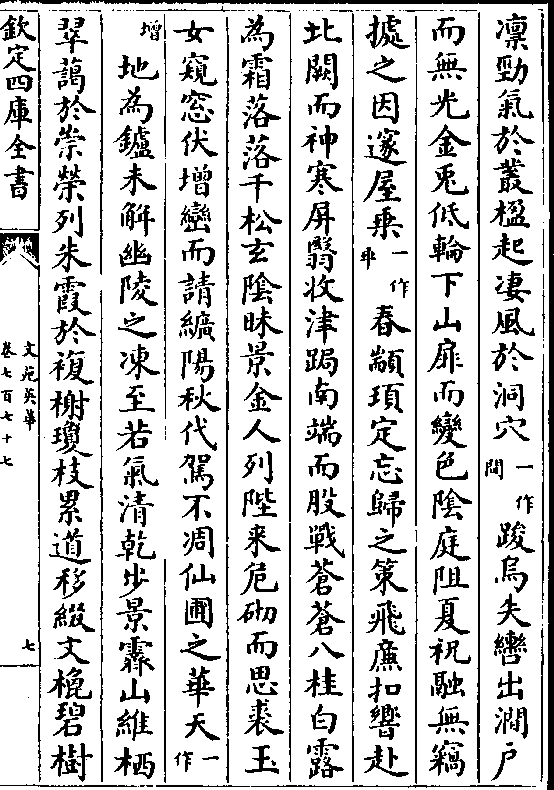 凜勁氣於叢楹起凄風於洞穴一作閒踆烏失轡出澗戶
而無光金兎低輪下山扉而變色陰庭阻夏祝融無竊
據之因邃屋乗一作乖春顓頊定忘歸之策飛廉扣響赴
北闕而神寒屏翳收津跼南端而股戰蒼蒼八桂白露
為霜落落千松玄陰昧景金人列陛来危砌而思裘玉
女窺窓伏增巒而請纊陽秋代駕不凋仙圃之華天一作
增地為鑪未解幽陵之凍至若氣清乾步景霽山維栖
翠藹於崇榮列朱霞於複榭瓊枝累道移綴文棍碧樹
欽定四庫全書
文苑英華
卷七百七十七
七